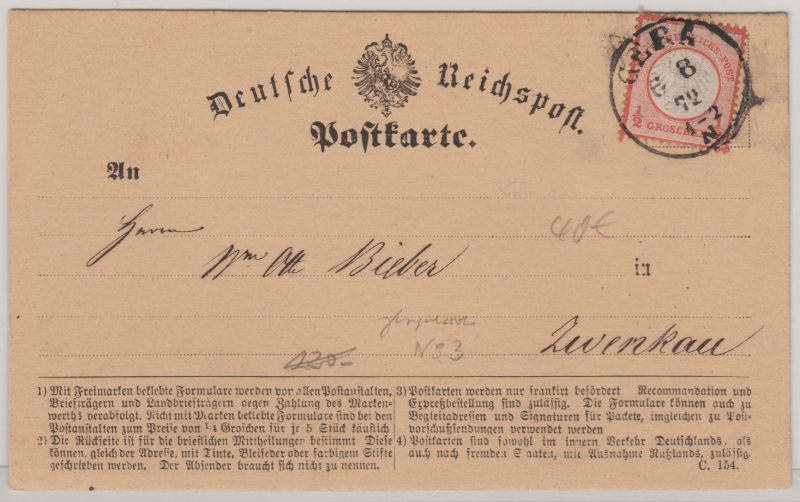 Deutsche Reichspost.
Postkarte.
GERA
8
72
1-2
N
REICHS-POST
1/2 GROSCHEN
An
Herrn
Wm Otto Bieber
in
Zwenkau
40€
120-
N 3.3
1) Mit Freimarken beklebte Formulare werden von allen Postanstalten,
Briefträgern und Landbriefträgern gegen Zahlung des Marken-
werths verabfolgt. Nicht mit Marken beklebte Formulare sind bei den
Postanstalten zum Preise von ¼ Groschen für je 5 Stück käuflich
2) Die Rückseite ist für die brieflichen Mittheilungen bestimmt Diese
können, gleich der Adresse, mit Tinte, Bleifeder oder farbigem Stifte
geschrieben werden. Der Absender braucht sich nicht zu nennen.
3) Postkarten werden nur frankirt befördert Recommandation und
Expreßbestellung sind zulässig. Die Formulare können auch zu
Begleitadressen und Signaturen für Packete, imgleichen zu Post-
vorschußsendungen verwendet werden
4) Postkarten sind sowohl im innern Verkehr Deutschlands, als
auch nach fremden Staaten, mit Ausnahme Rußlands, zulässig.
C. 154.